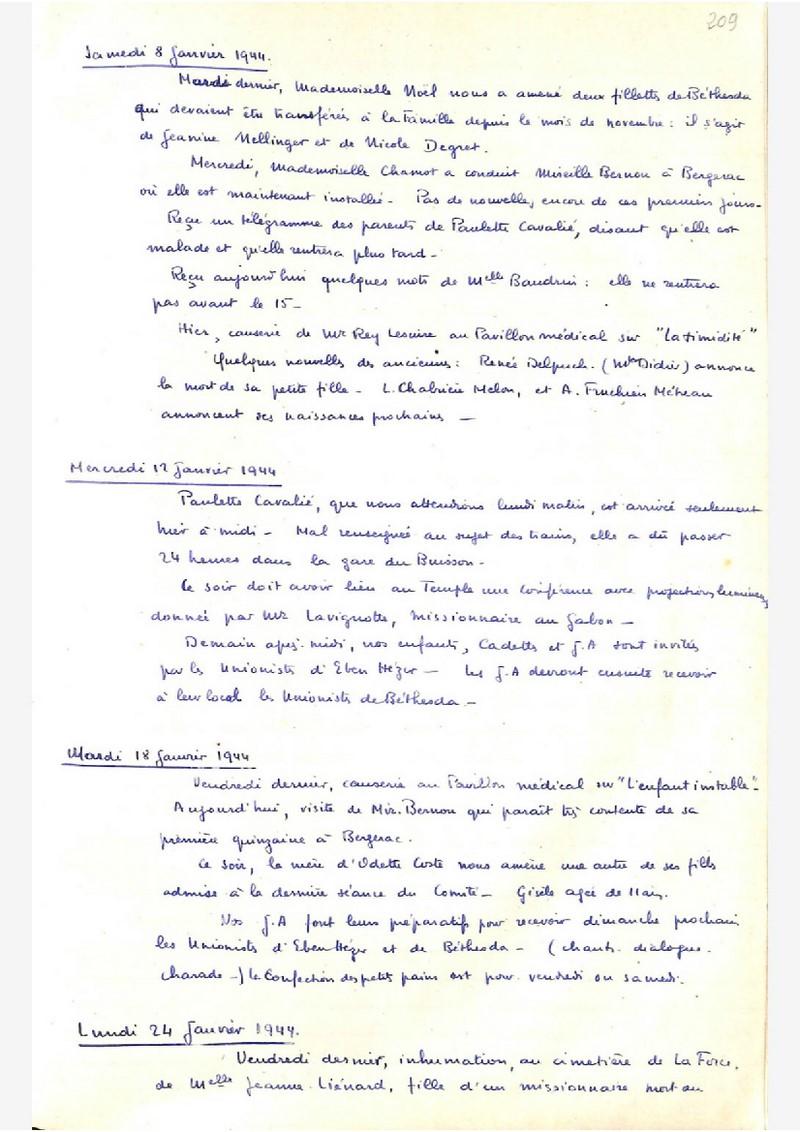 209
Samedi 8 Janvier 1944.
Mardi dernier, Mademoiselle Noël nous a amené deux fillettes de Béthesda
qui devaient être transférés à la Famille depuis le mois de novembre : il s'agit
de Jeanine Mellinger et de Nicole Degret.
Mercredi, Mademoiselle Chamot a conduit Mireille Bernon à Bergerac
où elle est maintenant installée - Pas de nouvelles, encore de ces premiers jours -
Reçu un télégramme des parents de Paulette Cavalié, disant qu'elle est
malade et qu'elle rentrera plus tard -
Reçu aujourd'hui quelques mots de Melle Baudrin : elle ne rentrera
pas avant le 15 -
Hier, causerie de Mr Rey Lescure au Pavillon médical sur "La timidité"
Quelques nouvelles des anciennes : Renée Delpuech. (Me Didier) annonce
la mort de sa petite fille - L. Chabricie Melon, et A. Métreau
annoncent des naissances prochaines —
Mercredi 12 Janvier 1944
Paulette Cavalié, que nous attendions lundi matin, est arrivée seulement
hier à midi - Mal renseignée au sujet des trains, elle a dû passer
24 heures dans la gare du Buisson -
Ce soir doit avoir lieu au Temple une conférence avec projections lumineuses
donnée par Mr Lavignotte, missionnaire au Gabon —
Demain après-midi, nos enfants, Cadettes et J.A sont invités
par les Unionistes d'Eben Hézer — Les J.A devront ensuite recevoir
à leur local les Unionistes de Béthesda -
Mardi 18 Janvier 1944
Vendredi dernier, causerie au Pavillon médical sur "L'enfant instable" -
Aujourd'hui, visite de Mir. Bernon qui paraît très contente de sa
première quinzaine à Bergerac.
Ce soir, la mère d'Odette Coste nous amène une autre de ses filles
admise à la dernière séance du Comité - Gisèle agée de 11 ans.
Nos J.A font leurs préparatifs pour recevoir dimanche prochain
les Unionistes d'Eben Hézer et de Béthesda - (chants. dialogue.
charade -) la Confection des petits pains est pour vendredi ou samedi.
Lundi 24 Janvier 1944.
Vendredi dernier, inhumation, au cimetière de La Force,
de Melle Jeanne Liénard, fille d'un missionnaire mort au